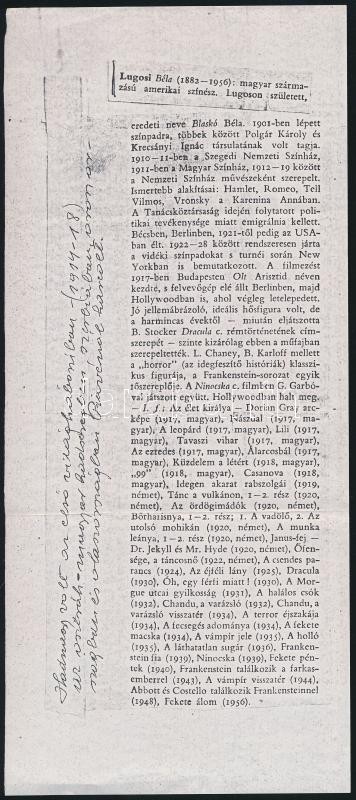 Lugosi Béla (1882—1956): magyar szárma-
zású amerikai színész. Lugoson született,
eredeti neve Blaskó Béla. 1901-ben lépett
színpadra, többek között Polgár Károly és
Krecsányi Ignác társulatának volt tagja.
1910—11-ben a Szegedi Nemzeti Színház,
1911-ben a Magyar Színház, 1912—19 között
a Nemzeti Színház művészeként szerepelt.
Ismertebb alakításai: Hamlet, Romeo, Tell
Vilmos, Vronsky a Karenina Annában.
A Tanácsköztársaság idején folytatott poli-
tikai tevékenysége miatt emigrálnia kellett.
Bécsben, Berlinben, 1921-től pedig az USA-
ban élt. 1922—28 között rendszeresen járta
a vidéki színpadokat s turnéi során New
Yorkban is bemutatkozott. A filmezést
1917-ben Budapesten Olt Arisztid néven
kezdte, s felvevőgép elé állt Berlinben, majd
Hollywoodban is, ahol végleg letelepedett.
Jó jellemábrázoló, ideális hősfigura volt, de
a harmincas évektől — miután eljátszotta
B. Stocker Dracula c. rémtörténetének cím-
szerepét — szinte kizárólag ebben a műfajban
szerepeltették. L. Chaney, B. Karloff mellett
a „horror" (az idegfeszítő históriák) klasszi-
kus figurája, a Frankenstein-sorozat egyik
főszereplője. A Ninocska c. filmben G. Garbó-
val játszott együtt. Hollywoodban halt meg.
— I. f.: Az élet királya — Dorian Gray arc-
képe (1917, magyar), Nászdal (1917, ma-
gyar), A leopárd (1917, magyar), Lili (1917,
magyar), Tavaszi vihar (1917, magyar),
Az ezredes (1917, magyar), Álarcosbál (1917,
magyar), Küzdelem a létért (1918, magyar),
„99" (1918, magyar), Casanova (1918,
magyar), Idegen akarat rabszolgái (1919,
német), Tánc a vulkánon, 1—2. rész (1920,
német), Az ördögimádók (1920, német),
Bőrharisnya, 1—2. rész; 1. A vadölő, 2. Az
utolsó mohikán (1920, német), A munka
leánya, 1—2. rész (1920, német), Janus-fej —
Dr. Jekyll és Mr. Hyde (1920, német), Őfen-
sége, a táncosnő (1922, német), A csendes pa-
rancs (1924), Az éjféli lány (1925), Dracula
(1930), Óh, egy férfi miatt! (1930), A Mor-
gue utcai gyilkosság (1931), A halálos csók
(1932), Chandu, a varázsló (1932), Chandu, a
varázsló visszatér (1934), A terror éjszakája
(1934), A fecsegés adománya (1934), A fekete
macska (1934), A vámpír jele (1935), A holló
(1935), A láthatatlan sugár (1936), Franken-
stein fia (1939), Ninocska (1939), Fekete pén-
tek (1940), Frankenstein találkozik a farkas-
emberrel (1943), A vámpír visszatér (1944),
Abbott és Costello találkozik Frankensteinnel
(1948), Fekete álom (1956).
Hadnagy volt az első világháborúban (1914-18)
az osztrák-magyar hadseregben Szerbiában, orosz-
ban és olaszországban